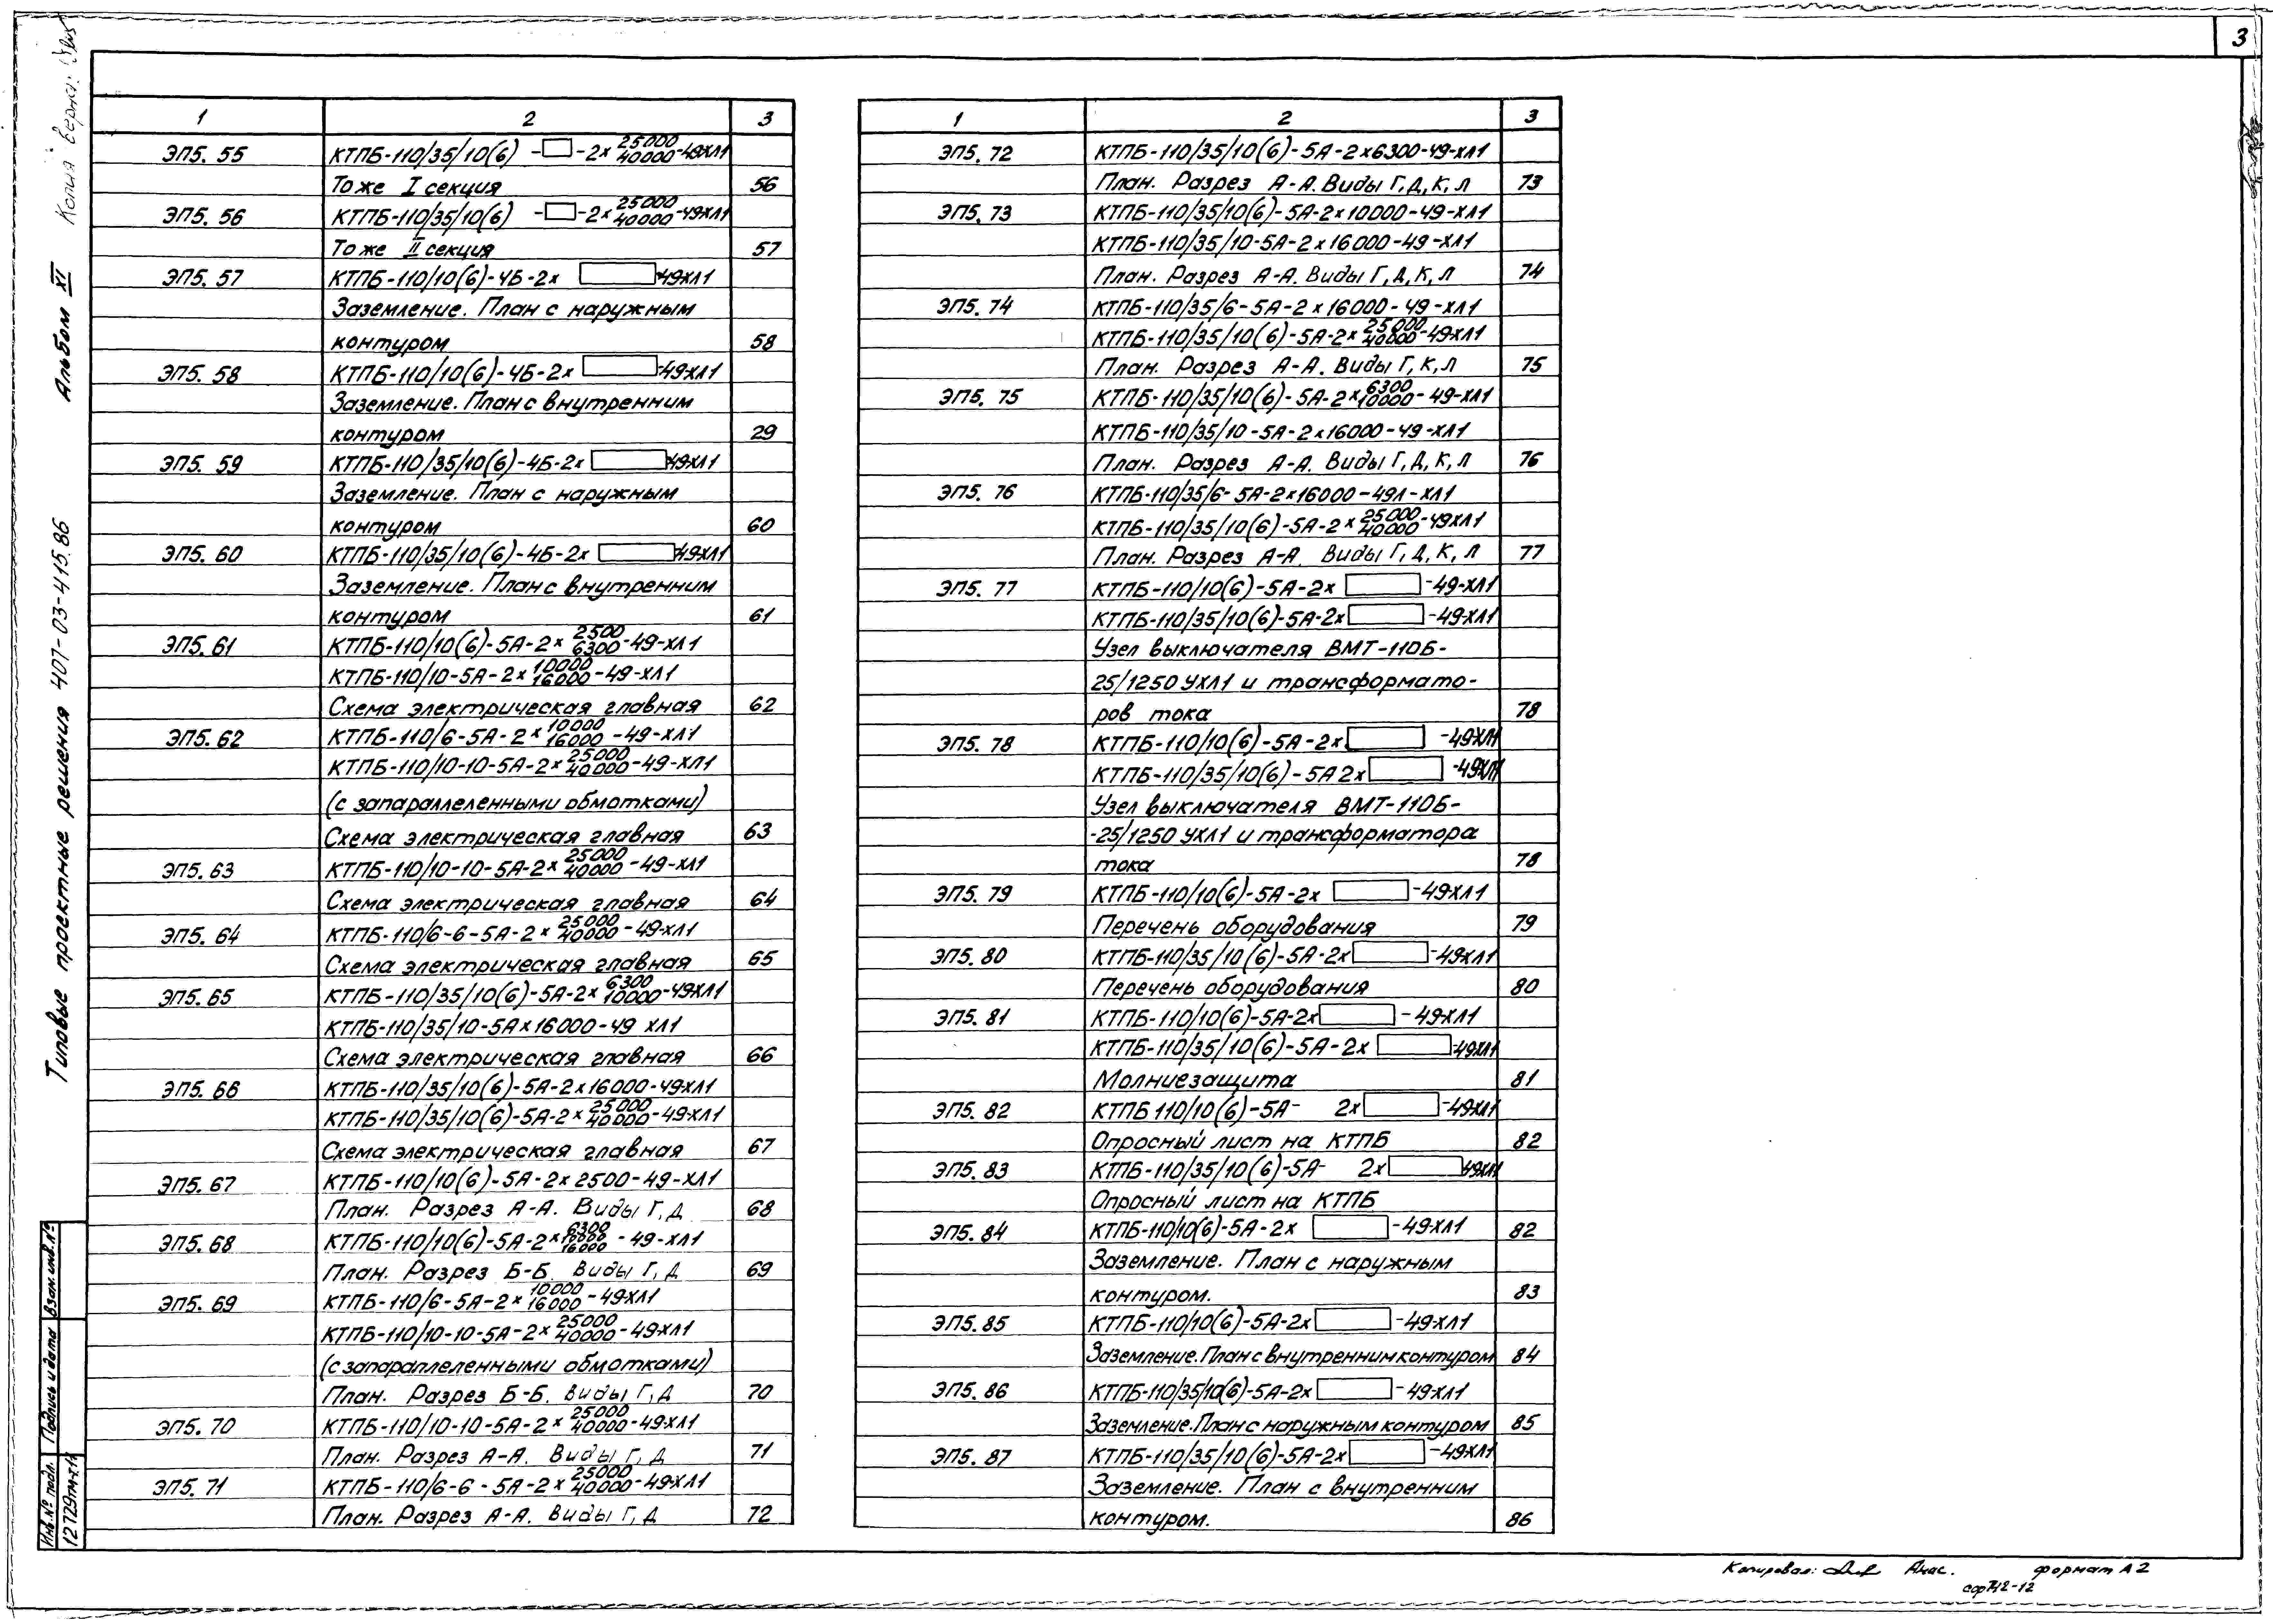 3
1 2 3
ЭП5. 55 КТПБ-110/35/10(6) -□-2×25000/40000-49ХЛ1
То же I секция 56
ЭП5. 56 КТПБ-110/35/10(6) -□-2×25000/40000-49ХЛ1
То же II секция 57
ЭП5. 57 КТПБ-110/10(6)-4Б-2× □ 49ХЛ1
Заземление. План с наружным
контуром 58
ЭП5. 58 КТПБ-110/10(6)-4Б-2× □-49ХЛ1
Заземление. План с внутренним
контуром 29
ЭП5. 59 КТПБ-110/35/10(6)-4Б-2× □ 49ХЛ1
Заземление. План с наружным
контуром 60
ЭП5. 60 КТПБ-110/35/10(6)-4Б-2× □ 49ХЛ1
Заземление. План с внутренним
контуром 61
ЭП5. 61 КТПБ-110/10(6)-5А-2×2500/6300-49-ХЛ1
КТПБ-110/10-5А-2×10000/16000-49-ХЛ1
Схема электрическая главная 62
ЭП5. 62 КТПБ-110/6-5А-2×10000/16000-49-ХЛ1
КТПБ-110/10-10-5А-2×25000/40000-49-ХЛ1
(с запараллеленными обмотками)
Схема электрическая главная 63
ЭП5. 63 КТПБ-110/10-10-5А-2×25000/40000-49-ХЛ1
Схема электрическая главная 64
ЭП5. 64 КТПБ-110/6-6-5А-2×25000/40000-49-ХЛ1
Схема электрическая главная 65
ЭП5. 65 КТПБ-110/35/10(6)-5А-2×6300/10000-49ХЛ1
КТПБ-110/35/10-5А×16000-49 ХЛ1
Схема электрическая главная 66
ЭП5. 66 КТПБ-110/35/10(6)-5А-2×16000-49ХЛ1
КТПБ-110/35/10(6)-5А-2×25000/40000-49-ХЛ1
Схема электрическая главная 67
ЭП5. 67 КТПБ-110/10(6)-5А-2×2500-49-ХЛ1
План. Разрез А-А. Виды Г, Д 68
ЭП5. 68 КТПБ-110/10(6)-5А-2×6300/10000/16000-49-ХЛ1
План. Разрез Б-Б. Виды Г, Д 69
ЭП5. 69 КТПБ-110/6-5А-2×10000/16000-49ХЛ1
КТПБ-110/10-10-5А-2×25000/40000-49ХЛ1
(с запараллеленными обмотками)
План. Разрез Б-Б. Виды Г, Д 70
ЭП5. 70 КТПБ-110/10-10-5А-2×25000/40000-49ХЛ1
План. Разрез А-А. Виды Г, Д 71
ЭП5. 71 КТПБ-110/6-6-5А-2×25000/40000-49ХЛ1
План. Разрез А-А. Виды Г, Д 72
1 2 3
ЭП5. 72 КТПБ-110/35/10(6)-5А-2×6300-49-ХЛ1
План. Разрез А-А. Виды Г, Д, К, Л 73
ЭП5. 73 КТПБ-110/35/10(6)-5А-2×10000-49-ХЛ1
КТПБ-110/35/10-5А-2×16000-49-ХЛ1
План. Разрез А-А. Виды Г, Д, К, Л 74
ЭП5. 74 КТПБ-110/35/6-5А-2×16000-49-ХЛ1
КТПБ-110/35/10(6)-5А-2×25000/40000-49ХЛ1
План. Разрез А-А. Виды Г, К, Л 75
ЭП5. 75 КТПБ-110/35/10(6)-5А-2×6300/10000-49-ХЛ1
КТПБ-110/35/10-5А-2×16000-49-ХЛ1
План. Разрез А-А. Виды Г, Д, К, Л 76
ЭП5. 76 КТПБ-110/35/6-5А-2×16000-49Л-ХЛ1
КТПБ-110/35/10(6)-5А-2×25000/40000-49ХЛ1
План. Разрез А-А. Виды Г, Д, К, Л 77
ЭП5. 77 КТПБ-110/10(6)-5А-2× □-49-ХЛ1
КТПБ-110/35/10(6)-5А-2× □-49-ХЛ1
Узел выключателя ВМТ-110Б-
25/1250 УХЛ1 и трансформато-
ров тока 78
ЭП5. 78 КТПБ-110/10(6)-5А-2× □-49ХЛ1
КТПБ-110/35/10(6)-5А 2× □-49ХЛ1
Узел выключателя ВМТ-110Б-
-25/1250 УХЛ1 и трансформатора
тока 78
ЭП5. 79 КТПБ-110/10(6)-5А-2× □-49ХЛ1
Перечень оборудования 79
ЭП5. 80 КТПБ-110/35/10(6)-5А-2× □-49ХЛ1
Перечень оборудования 80
ЭП5. 81 КТПБ-110/10(6)-5А-2× □-49-ХЛ1
КТПБ-110/35/10(6)-5А-2× □-49ХЛ1
Молниезащита 81
ЭП5. 82 КТПБ 110/10(6)-5А- 2× □-49ХЛ1
Опросный лист на КТПБ 82
ЭП5. 83 КТПБ-110/35/10(6)-5А- 2× □ 49ХЛ1
Опросный лист на КТПБ
ЭП5. 84 КТПБ-110/10(6)-5А-2× □-49-ХЛ1 82
Заземление. План с наружным
контуром. 83
ЭП5. 85 КТПБ-110/10(6)-5А-2× □-49-ХЛ1
Заземление. План с внутренним контуром 84
ЭП5. 86 КТПБ-110/35/10(6)-5А-2× □-49ХЛ1
Заземление. План с наружным контуром 85
ЭП5. 87 КТПБ-110/35/10(6)-5А-2× □-49ХЛ1
Заземление. План с внутренним
контуром. 86
Типовые проектные решения 407-03-415.86 Альбом XI Копия верна:
Инв.№ подл. Подпись и дата Взам.инв.№
12729тм-т11
Копировал: Анас. формат А2